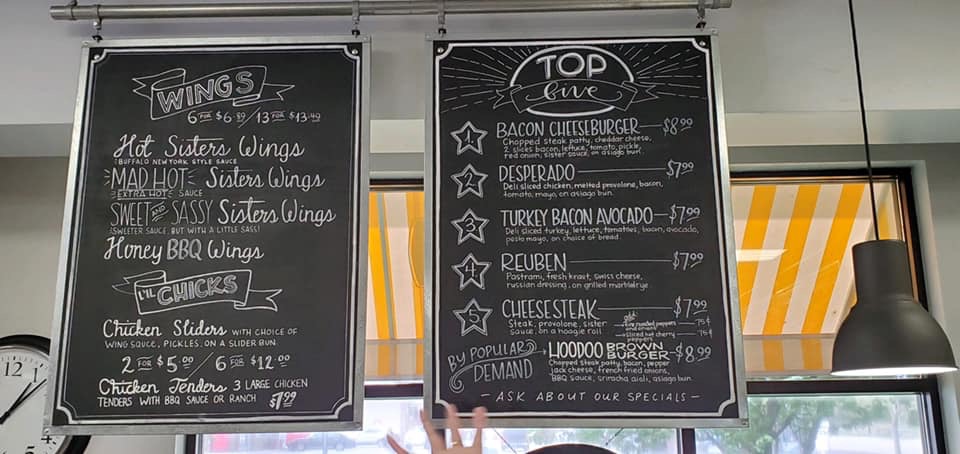 WINGS
6 FOR $6.80 / 13 FOR $13.40
Hot Sisters Wings
BUFFALO NEW YORK STYLE SAUCE
MAD HOT Sisters Wings
EXTRA HOT SAUCE
SWEET AND SASSY Sisters Wings
SWEETER SAUCE, BUT WITH A LITTLE SASS!
Honey BBQ Wings
LIL CHICKS
Chicken Sliders WITH CHOICE OF
WING SAUCE, PICKLES, ON A SLIDER BUN.
2 FOR $5.00 / 6 FOR $12.00
Chicken Tenders 3 LARGE CHICKEN
TENDERS WITH BBQ SAUCE OR RANCH $7.99
TOP
five
1 BACON CHEESEBURGER $8.99
Chopped steak patty, cheddar cheese,
2 slices bacon, lettuce, tomato, pickle,
red onion, sister sauce, on asiago bun.
2 DESPERADO $7.99
Deli sliced chicken, melted provolone, bacon,
tomato, mayo, on asiago bun.
3 TURKEY BACON AVOCADO $7.99
Deli sliced turkey, lettuce, tomatoes, bacon, avocado,
pesto mayo, on choice of bread.
4 REUBEN $7.99
Pastrami, fresh kraut, swiss cheese,
russian dressing, on grilled marble rye.
5 CHEESESTEAK $7.99
Steak, provolone, sister
sauce, on a hoagie roll
add
fire roasted peppers
and onions 75¢
sliced hot cherry
peppers 75¢
BY POPULAR
DEMAND
HOODOO BROWN
BURGER $8.99
Chopped steak patty, bacon, pepper
jack cheese, french fried onions,
BBQ sauce, sriracha aioli, asiago bun.
- ASK ABOUT OUR SPECIALS -
12
1